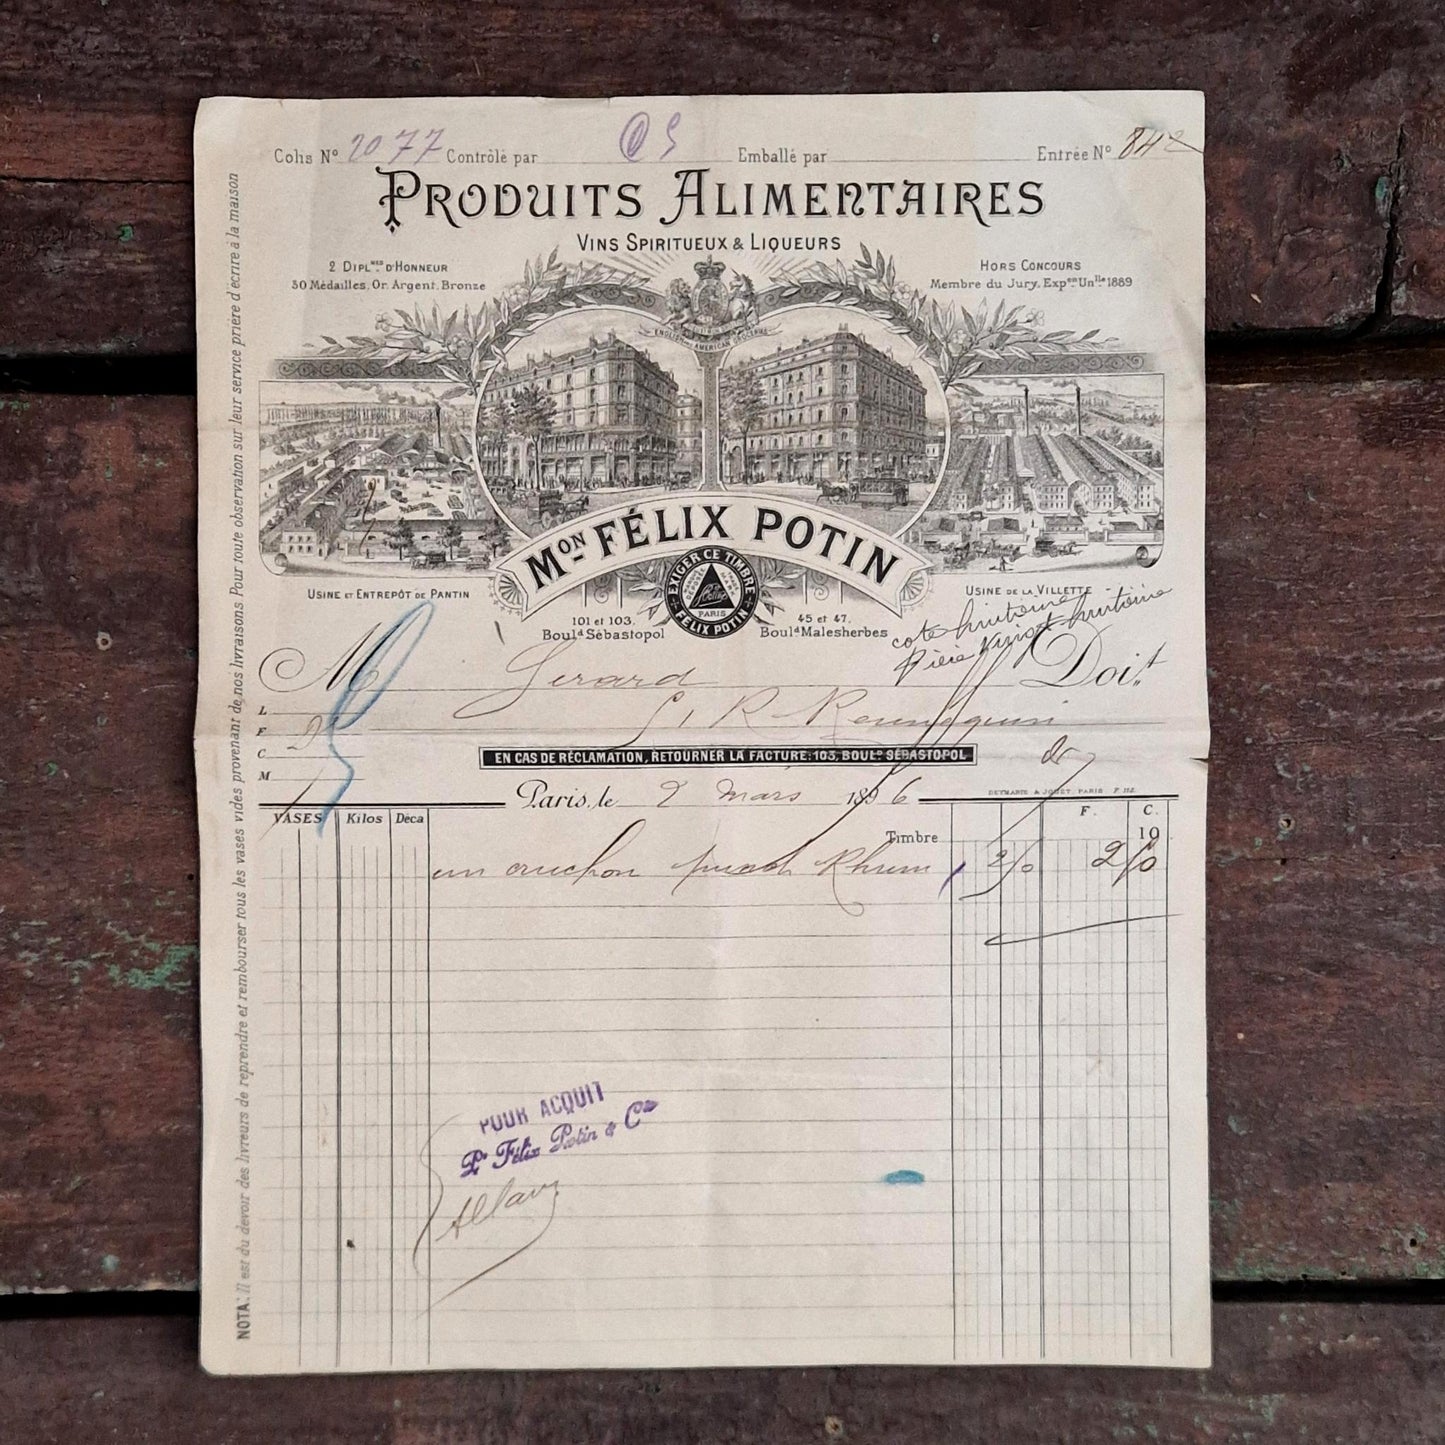 Colis Nº 2077 Contrôlé par Emballé par Entrée Nº 842
PRODUITS ALIMENTAIRES
VINS SPIRITUEUX & LIQUEURS
2 DIPL.MES D'HONNEUR
30 Médailles, Or, Argent, Bronze
HORS CONCOURS
Membre du Jury, Expon Unlle 1889
ENGLISH AND AMERICAN GROCERIES
MON FÉLIX POTIN
EXIGER CE TIMBRE
PARIS
FELIX POTIN
USINE ET ENTREPÔT DE PANTIN
USINE DE LA VILLETTE
101 et 103.
Bould Sébastopol
45 et 47.
Bould Malesherbes
cote huitième
pièce vingt huitième
M Gerard Doit
L
F
C
M
EN CAS DE RÉCLAMATION, RETOURNER LA FACTURE, 103, BOULD SÉBASTOPOL
Paris, le 2 mars 1896
DEYMARIE & JOUET, PARIS
VASES Kilos Déca F. C.
Timbre 10
un cruchon Rhum
POUR ACQUIT
Pr Félix Potin & Cie
NOTA: Il est du devoir des livreurs de reprendre et rembourser tous les vases vides provenant de nos livraisons Pour toute observation sur leur service prière d'écrire à la maison